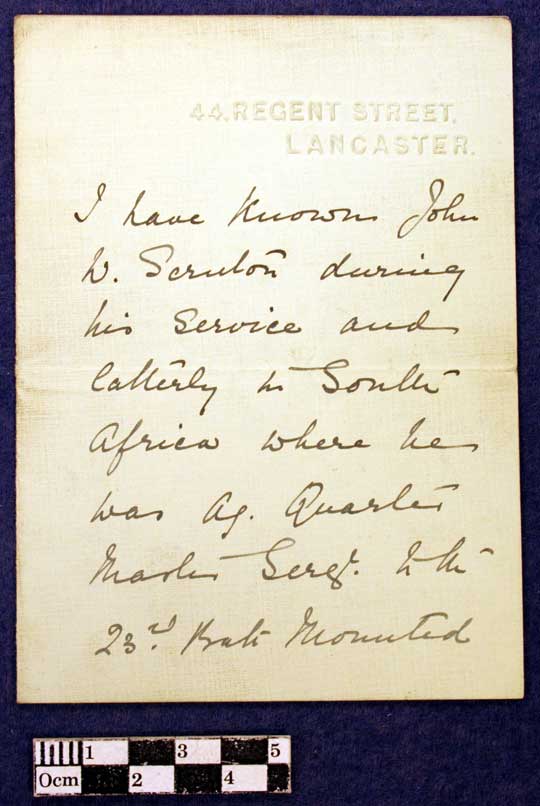 44, REGENT STREET,
LANCASTER.
I have known John
W. Scruton during
his Service and
latterly in South
Africa where he
was Ag. Quarter
Master Sergt. to the
23rd Batt Mounted
1 3 5
0cm 2 4